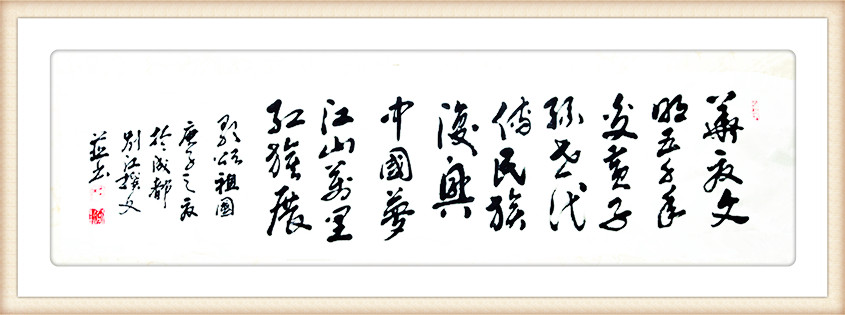 華夏文
明五千年
炎黃子
孫世代
傳民族
復興
中國夢
江山萬里
紅旗展
歌頌祖國
庚子之夏
於成都
别江撰文
並书